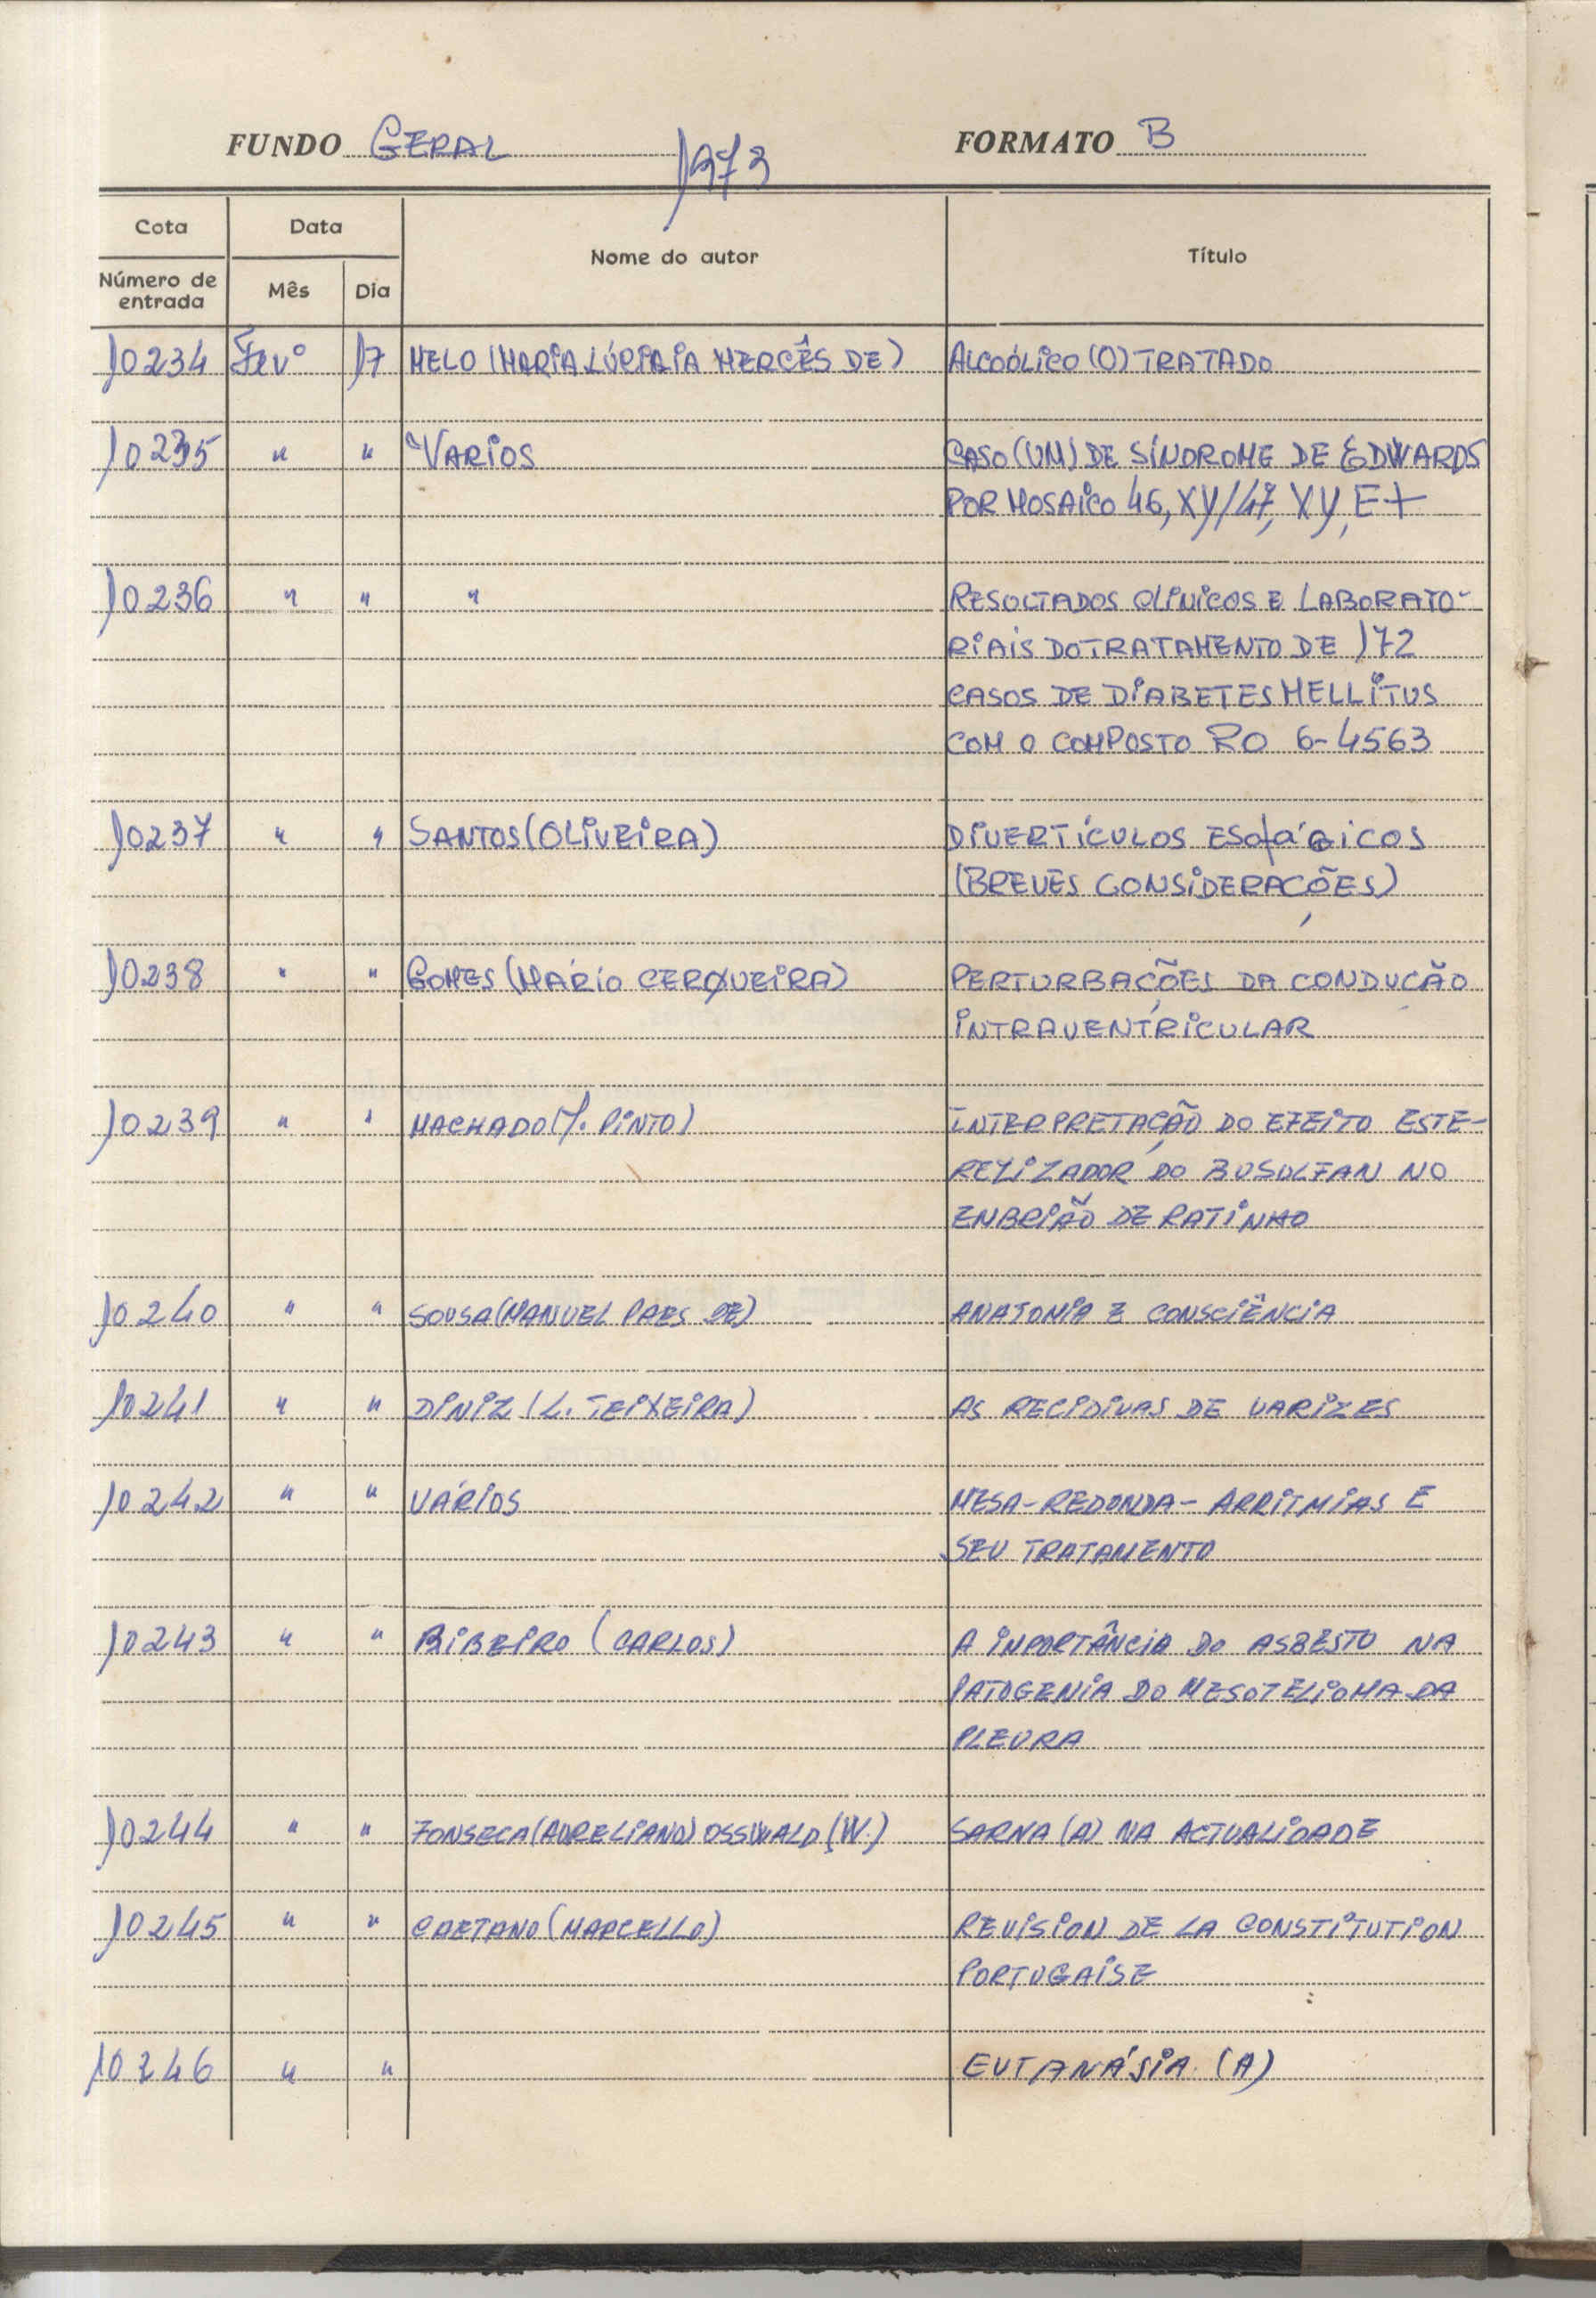 FUNDO GERAL 1973 FORMATO B
Cota Data Nome do autor Título
Número de entrada Mês Dia
10234 Fevº 17 MELO (MARIA MERCÊS DE) ALCOÓLICO (O) TRATADO
10235 " " VARIOS CASO (UM) DE SÍNDROME DE EDWARDS
POR MOSAICO 46, XY/47, XY, E+
10236 " " " RESULTADOS CLÍNICOS E LABORATO-
RIAIS DO TRATAMENTO DE 172
CASOS DE DIABETES MELLITUS
COM O COMPOSTO RO 6-4563
10237 " " SANTOS (OLIVEIRA) DIVERTÍCULOS ESOFÁGICOS
(BREVES CONSIDERAÇÕES)
10238 " " GOMES (MÁRIO CERQUEIRA) PERTURBAÇÕES DA CONDUCÃO
INTRAVENTRICULAR
10239 " " MACHADO (J. PINTO) INTERPRETAÇÃO DO EFEITO ESTE-
RELIZADOR DO BUSULFAN NO
ENBRIÃO DE RATINHO
10240 " " SOUSA (MANUEL PAES DE) ANATOMIA E CONSCIÊNCIA
10241 " " DINIZ (L. TEIXEIRA) AS RECIDIVAS DE VARIZES
10242 " " VÁRIOS MESA-REDONDA - ARRITMIAS E
SEU TRATAMENTO
10243 " " RIBEIRO (CARLOS) A IMPORTÂNCIA DO ASBESTO NA
PATOGENIA DO MESOTELIOMA DA
PLEURA
10244 " " FONSECA (AURELIANO) OSSWALD (W.) SARNA (A) NA ACTUALIDADE
10245 " " CAETANO (MARCELLO) REVISION DE LA CONSTITUTION
PORTUGAISE
10246 " " EUTANÁSIA (A)